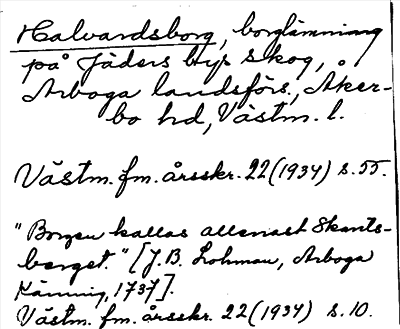 Halvardsborg, borglämning
på Jäders bys skog,
Arboga landsförs., Åker-
bo hd, Västm. l.
Västm. fm. årsskr. 22 (1934) s. 55.
"Borgen kallas allenast Skants-
berget." [J.B. Lohman, Arboga
Känning, 1737].
Västm. fm. årsskr. 22 (1934) s. 10.